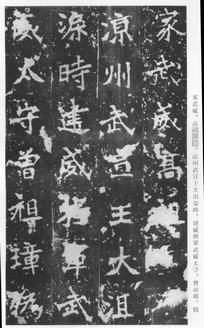 家武威髙
涼州武宣王大沮
渠時建威將軍武
威太守曾祖璋偽
家武威。高祖
涼州武宣王大沮渠時，建威將軍武威太守。曾祖璋，偽